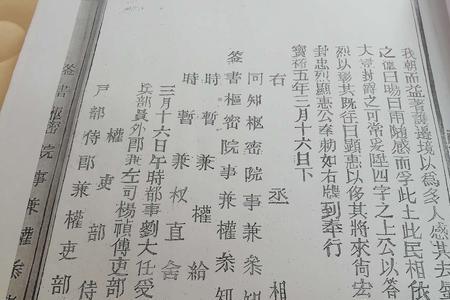 我朝而益著籌邊境以為多人感其去
之僾曰暘曰雨隨感而孚此土此民相依
大寧封爵之可常是陞四字之上公以答
烈以彰其既往曰顯惠以侈其將來尚宏
封忠烈顯惠公奉勑如右牒到奉行
寶祐五年三月十六日下
右丞相
同知枢密院事兼叅知
簽書樞密院事兼權叅知
時暫兼權給
時暫兼权直舍
三月十六日午時都事劉大任受
兵部員外郎兼左司楊禎傅吏部
權吏部侍
户部侍郎兼權吏部
簽書樞密院事兼權叅